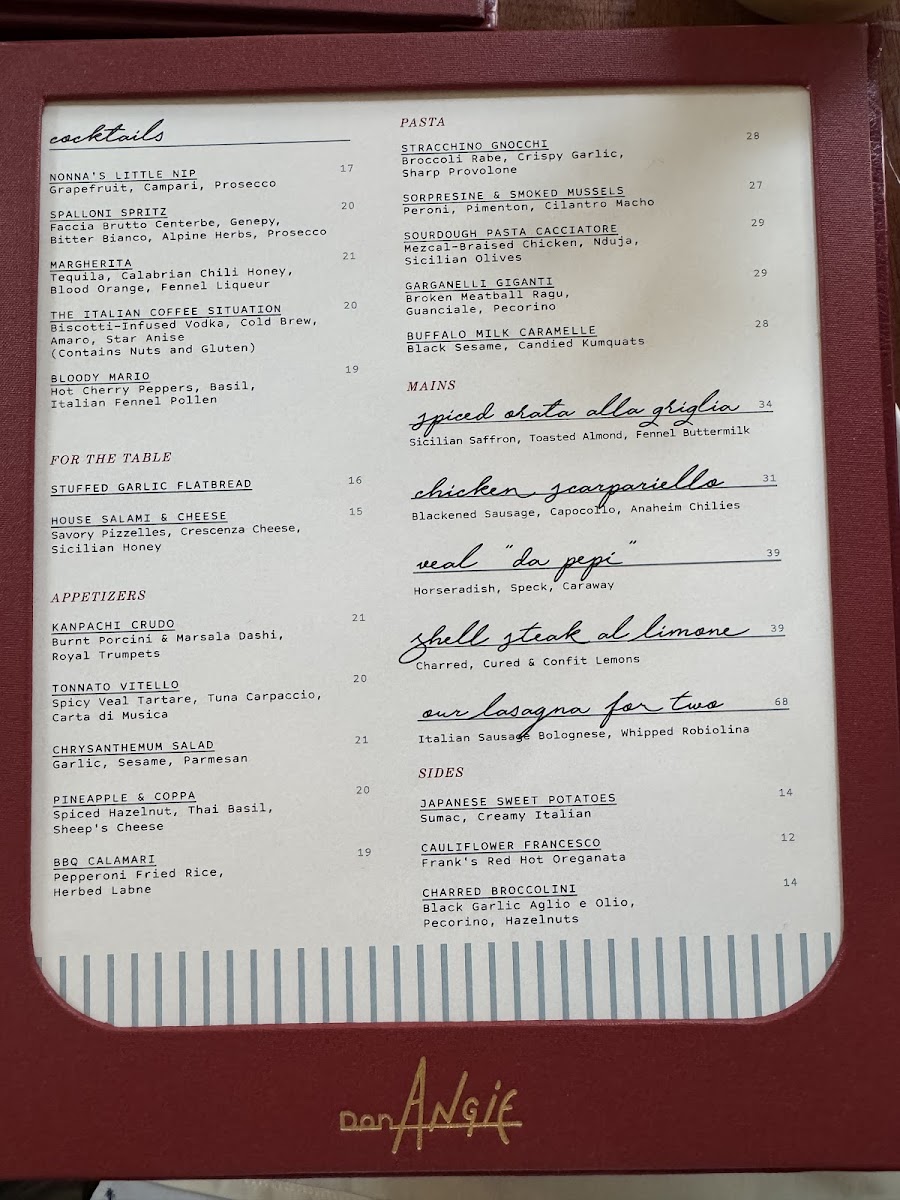 cocktails
NONNA'S LITTLE NIP 17
Grapefruit, Campari, Prosecco
SPALLONI SPRITZ 20
Faccia Brutto Centerbe, Genepy,
Bitter Bianco, Alpine Herbs, Prosecco
MARGHERITA 21
Tequila, Calabrian Chili Honey,
Blood Orange, Fennel Liqueur
THE ITALIAN COFFEE SITUATION 20
Biscotti-Infused Vodka, Cold Brew,
Amaro, Star Anise
(Contains Nuts and Gluten)
BLOODY MARIO 19
Hot Cherry Peppers, Basil,
Italian Fennel Pollen
FOR THE TABLE
STUFFED GARLIC FLATBREAD 16
HOUSE SALAMI & CHEESE 15
Savory Pizzelles, Crescenza Cheese,
Sicilian Honey
APPETIZERS
KANPACHI CRUDO 21
Burnt Porcini & Marsala Dashi,
Royal Trumpets
TONNATO VITELLO 20
Spicy Veal Tartare, Tuna Carpaccio,
Carta di Musica
CHRYSANTHEMUM SALAD 21
Garlic, Sesame, Parmesan
PINEAPPLE & COPPA 20
Spiced Hazelnut, Thai Basil,
Sheep's Cheese
BBQ CALAMARI 19
Pepperoni Fried Rice,
Herbed Labne
PASTA
STRACCHINO GNOCCHI 28
Broccoli Rabe, Crispy Garlic,
Sharp Provolone
SORPRESINE & SMOKED MUSSELS 27
Peroni, Pimenton, Cilantro Macho
SOURDOUGH PASTA CACCIATORE 29
Mezcal-Braised Chicken, Nduja,
Sicilian Olives
GARGANELLI GIGANTI 29
Broken Meatball Ragu,
Guanciale, Pecorino
BUFFALO MILK CARAMELLE 28
Black Sesame, Candied Kumquats
MAINS
spiced orata alla griglia 34
Sicilian Saffron, Toasted Almond, Fennel Buttermilk
chicken scarpariello 31
Blackened Sausage, Capocollo, Anaheim Chilies
veal "da pepi" 39
Horseradish, Speck, Caraway
shell steak al limone 39
Charred, Cured & Confit Lemons
our lasagna for two 68
Italian Sausage Bolognese, Whipped Robiolina
SIDES
JAPANESE SWEET POTATOES 14
Sumac, Creamy Italian
CAULIFLOWER FRANCESCO 12
Frank's Red Hot Oreganata
CHARRED BROCCOLINI 14
Black Garlic Aglio e Olio,
Pecorino, Hazelnuts
Don ANGIE